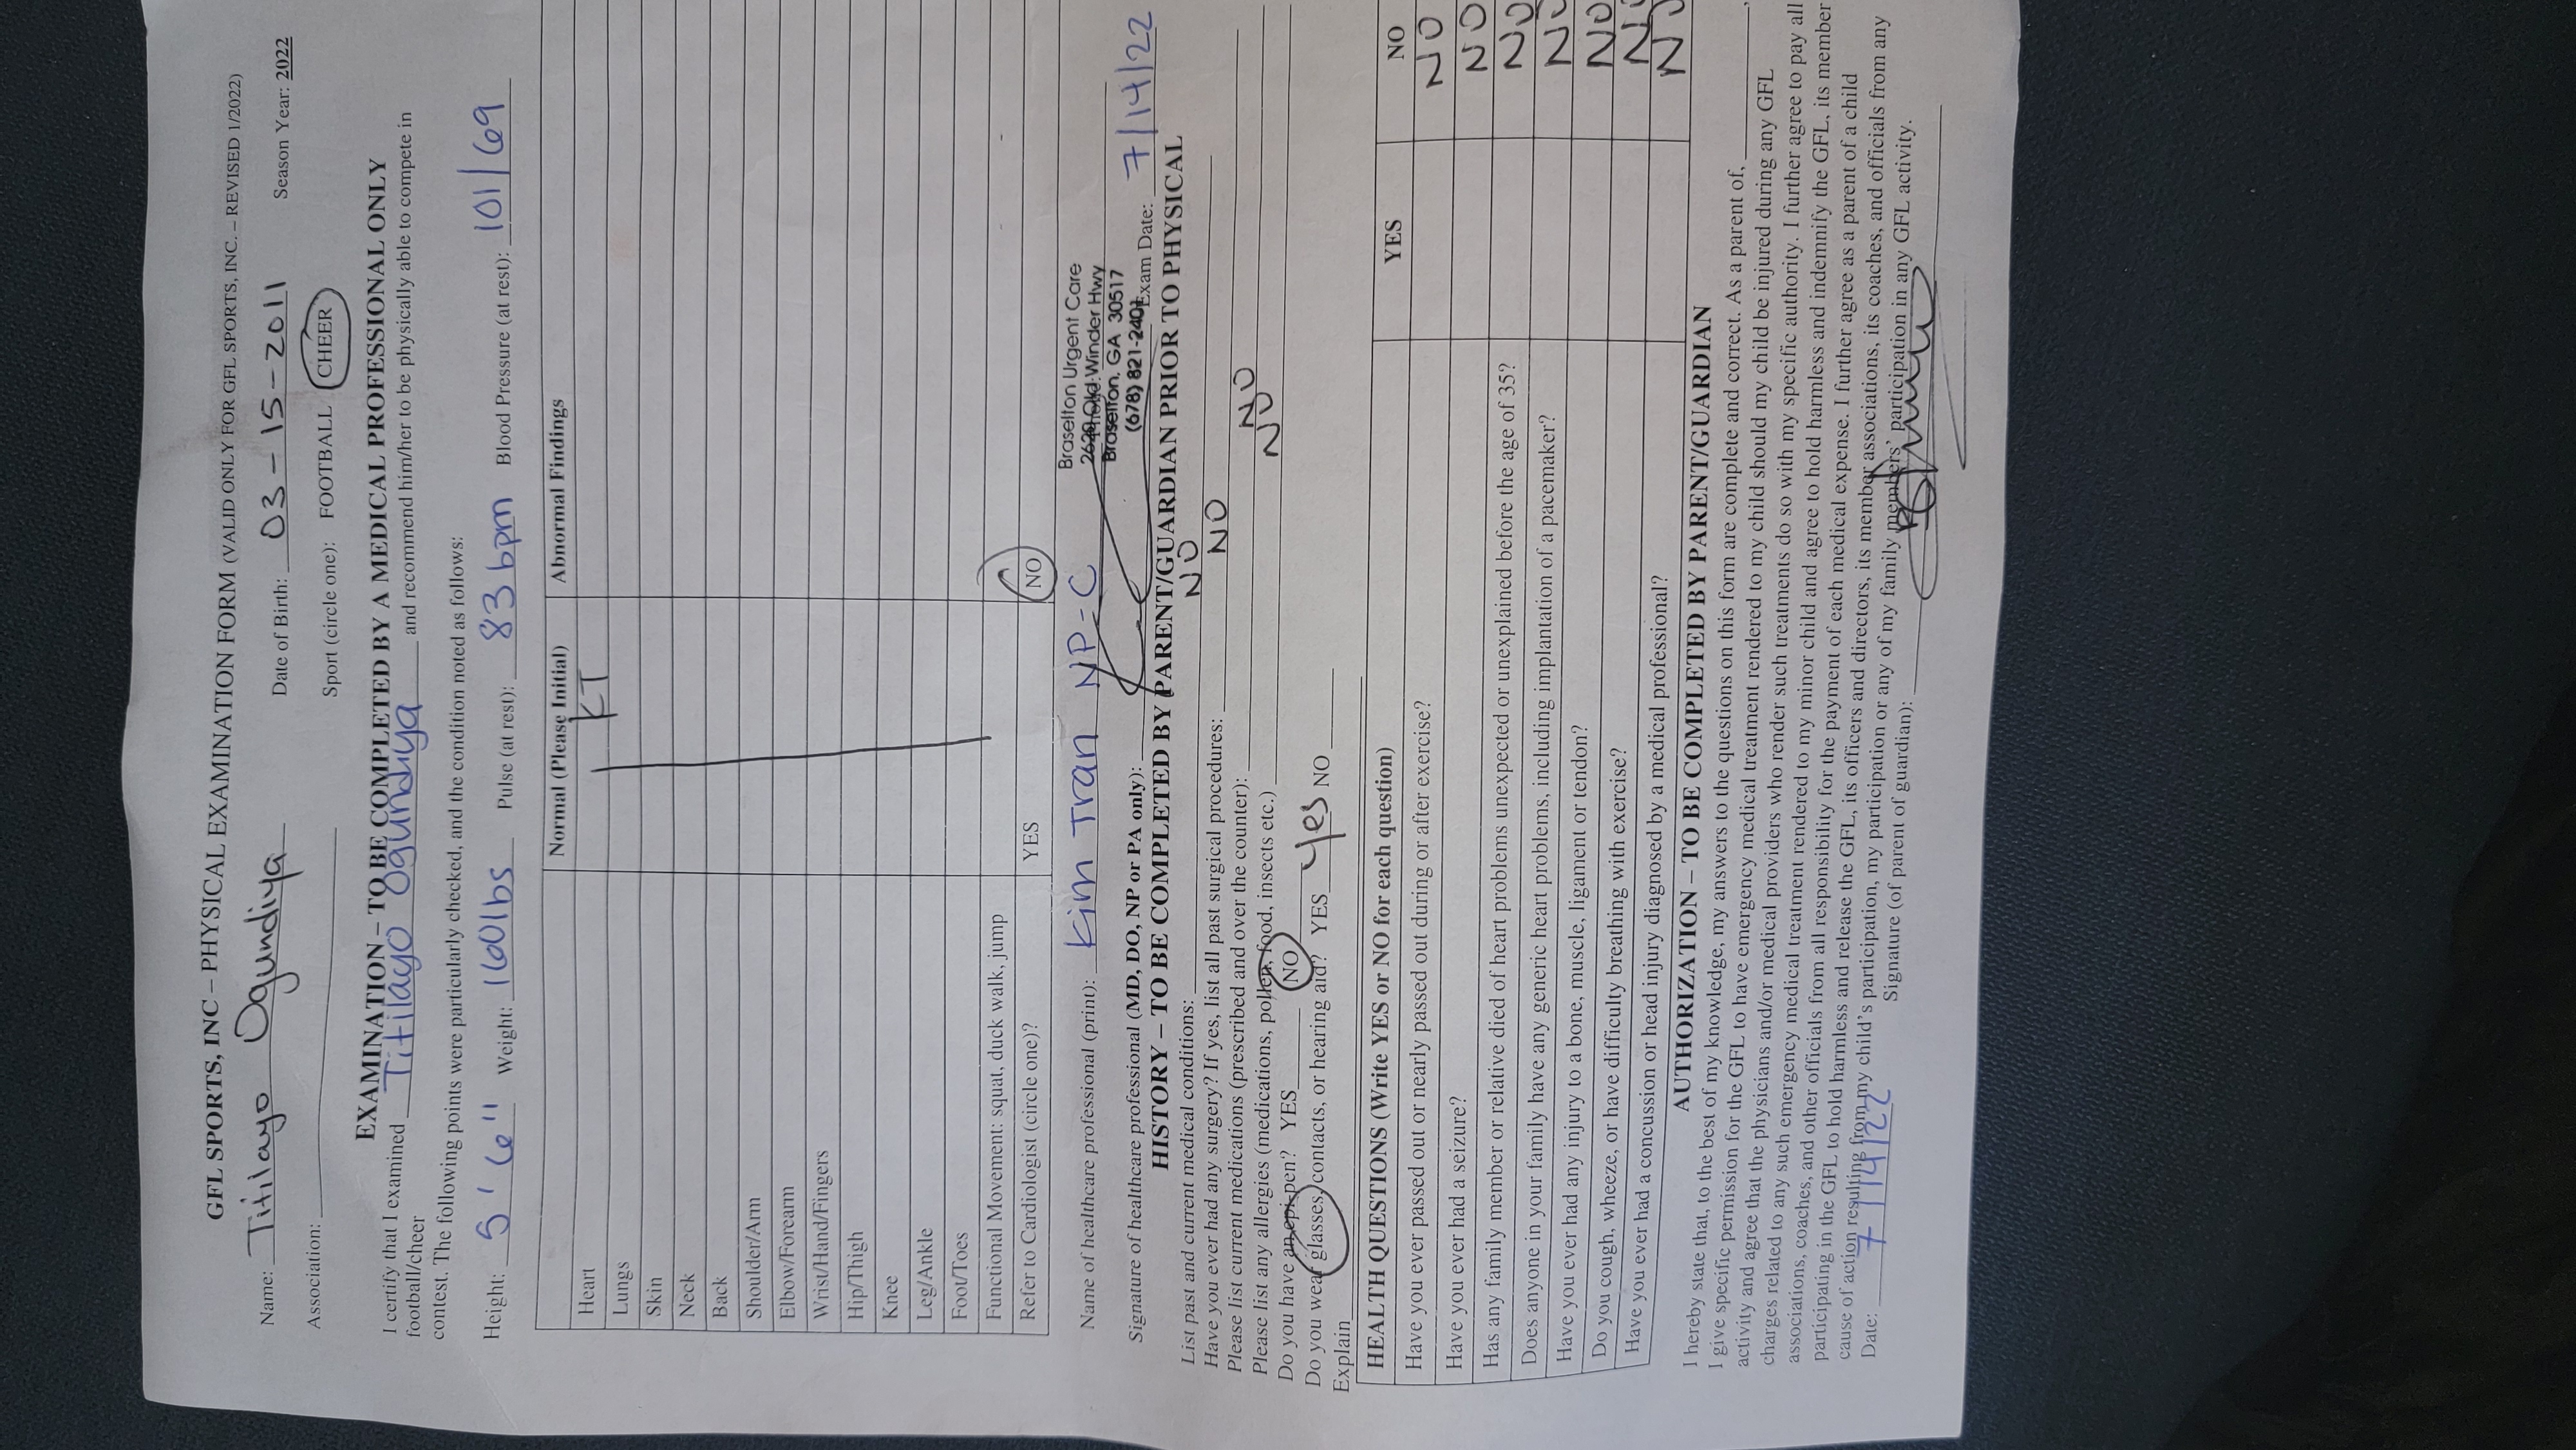 GFL SPORTS, INC – PHYSICAL EXAMINATION FORM (VALID ONLY FOR GFL SPORTS, INC. – REVISED 1/2022)
Name: Titilayo Ogundiya Date of Birth: 03-15-2011 Season Year: 2022
Association: Sport (circle one): FOOTBALL CHEER
EXAMINATION – TO BE COMPLETED BY A MEDICAL PROFESSIONAL ONLY
I certify that I examined Titilayo Ogundiya and recommend him/her to be physically able to compete in
football/cheer
contest. The following points were particularly checked, and the condition noted as follows:
Height: 5'6" Weight: 160lbs Pulse (at rest): 83bpm Blood Pressure (at rest): 101/69
Normal (Please Initial) Abnormal Findings
Heart KT
Lungs
Skin
Neck
Back
Shoulder/Arm
Elbow/Forearm
Wrist/Hand/Fingers
Hip/Thigh
Knee
Leg/Ankle
Foot/Toes
Functional Movement: squat, duck walk, jump
Refer to Cardiologist (circle one)? YES NO
Braselton Urgent Care
Name of healthcare professional (print): Kim Tran NP-C 2620 Old Winder Hwy
Braselton, GA 30517
Signature of healthcare professional (MD, DO, NP or PA only): (678) 821-2401 Exam Date: 7/14/22
HISTORY – TO BE COMPLETED BY PARENT/GUARDIAN PRIOR TO PHYSICAL
List past and current medical conditions: NO
Have you ever had any surgery? If yes, list all past surgical procedures: NO
Please list current medications (prescribed and over the counter): NO
Please list any allergies (medications, pollen, food, insects etc.) NO
Do you have an epi-pen? YES NO
Do you wear glasses, contacts, or hearing aid? YES Yes NO
Explain
HEALTH QUESTIONS (Write YES or NO for each question) YES NO
Have you ever passed out or nearly passed out during or after exercise? NO
Have you ever had a seizure? NO
Has any family member or relative died of heart problems unexpected or unexplained before the age of 35? NO
Does anyone in your family have any generic heart problems, including implantation of a pacemaker? NO
Have you ever had any injury to a bone, muscle, ligament or tendon? NO
Do you cough, wheeze, or have difficulty breathing with exercise? NO
Have you ever had a concussion or head injury diagnosed by a medical professional? NO
AUTHORIZATION – TO BE COMPLETED BY PARENT/GUARDIAN
I hereby state that, to the best of my knowledge, my answers to the questions on this form are complete and correct. As a parent of, ,
I give specific permission for the GFL to have emergency medical treatment rendered to my child should my child be injured during any GFL
activity and agree that the physicians and/or medical providers who render such treatments do so with my specific authority. I further agree to pay all
charges related to any such emergency medical treatment rendered to my minor child and agree to hold harmless and indemnify the GFL, its member
associations, coaches, and other officials from all responsibility for the payment of each medical expense. I further agree as a parent of a child
participating in the GFL to hold harmless and release the GFL, its officers and directors, its member associations, its coaches, and officials from any
cause of action resulting from my child's participation, my participation or any of my family members' participation in any GFL activity.
Date: 7/14/22 Signature (of parent of guardian):